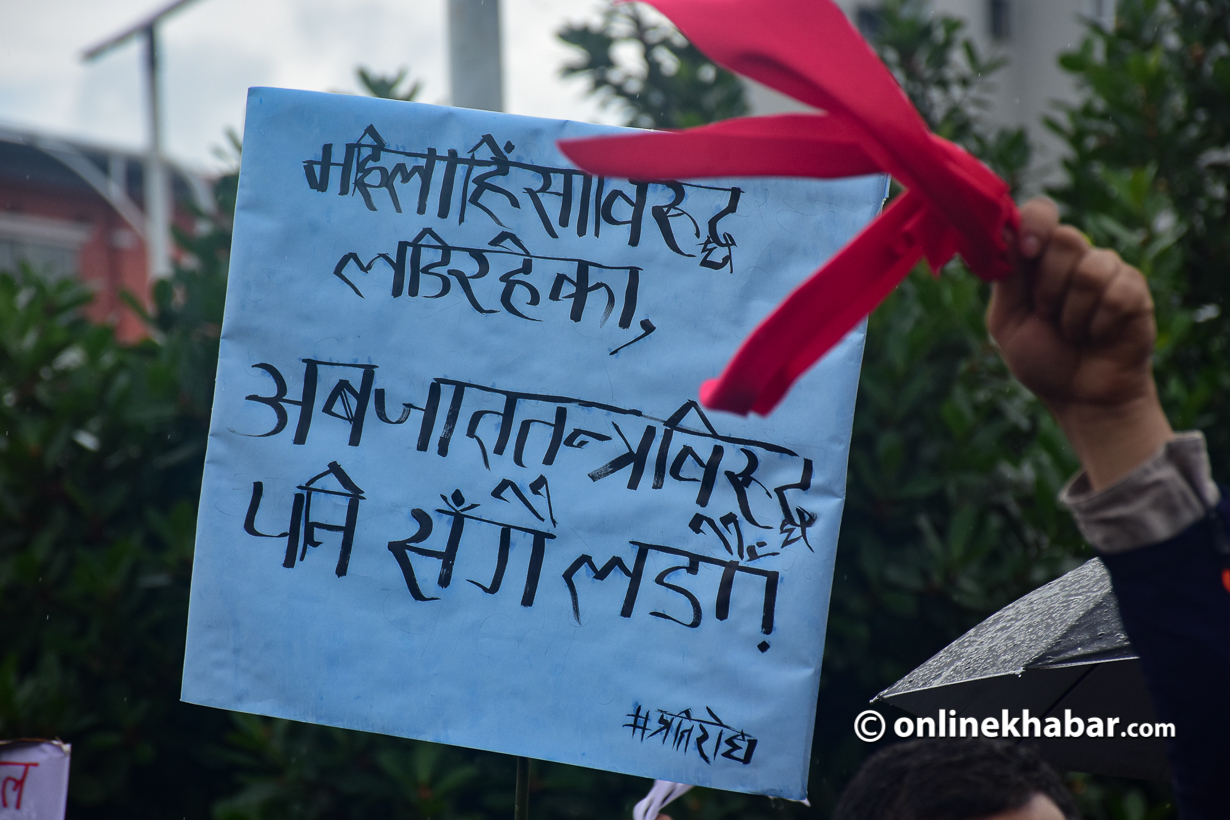 महिलाहिंसाविरुद्ध
लडिरहेका,
अब जाततन्त्रबिरुद्ध
पनि सँगै लडौं!
#प्रतिरोध
© onlinekhabar.com